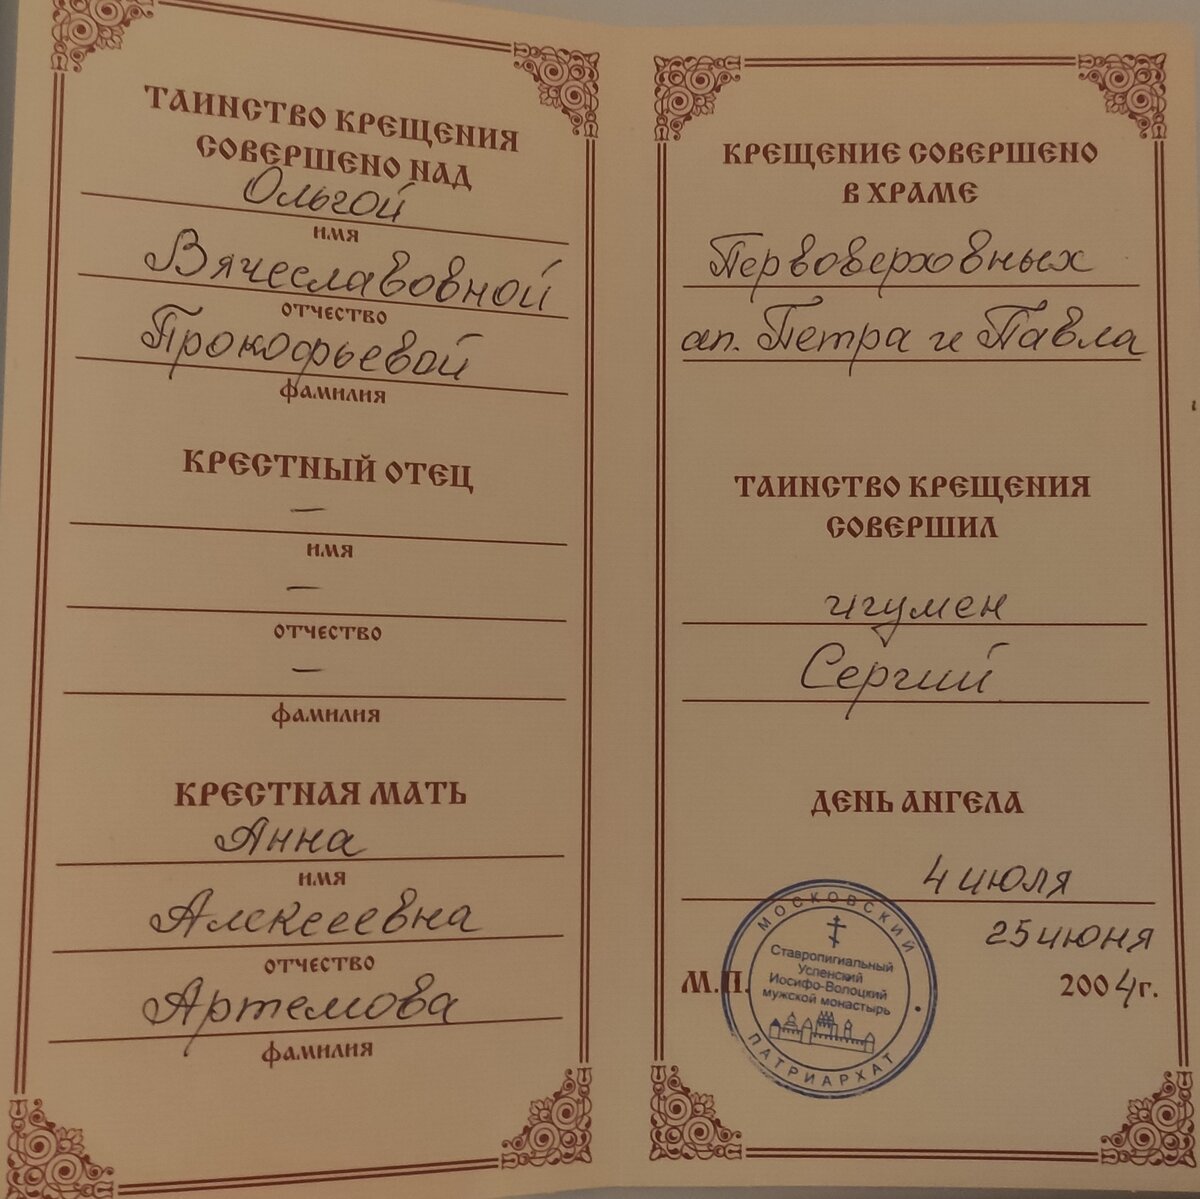 ТАИНСТВО КРЕЩЕНИЯ
СОВЕРШЕНО НАД
Ольгой
имя
Вячеславовной
отчество
Прокофьевой
фамилия
КРЕСТНЫЙ ОТЕЦ
—
имя
—
отчество
—
фамилия
КРЕСТНАЯ МАТЬ
Анна
имя
Алексеевна
отчество
Артемова
фамилия
КРЕЩЕНИЕ СОВЕРШЕНО
В ХРАМЕ
Первоверховных
ап. Петра и Павла
ТАИНСТВО КРЕЩЕНИЯ
СОВЕРШИЛ
игумен
Сергий
ДЕНЬ АНГЕЛА
4 июля
25 июня
М.П. 2004г.
МОСКОВСКИЙ
Ставропигиальный
Успенский
Иосифо-Волоцкий
мужской монастырь
ПАТРИАРХАТ